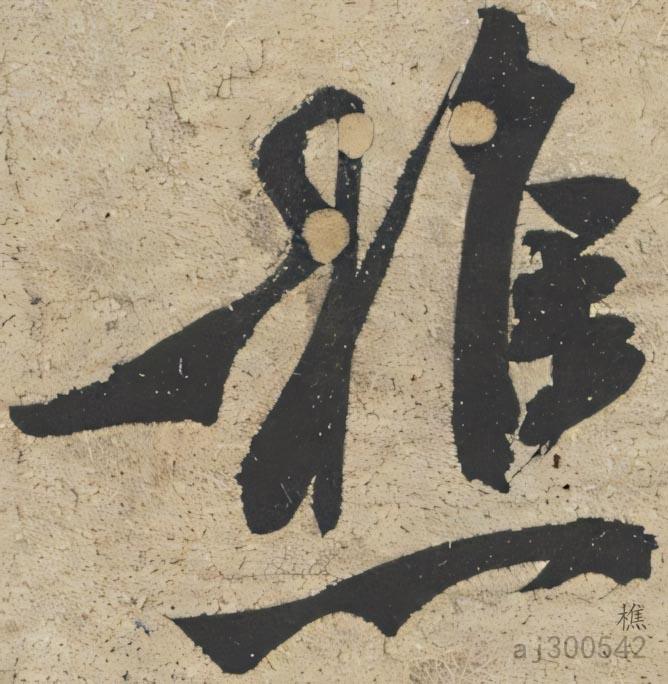 樵
樵
aj300542